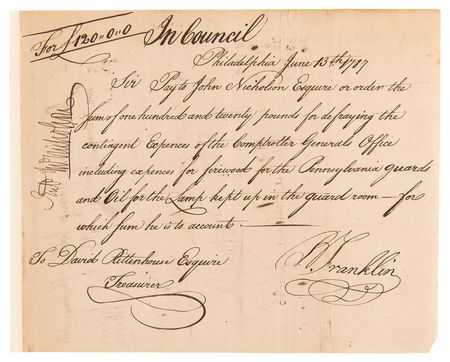 For £120-0-0
In Council
Philadelphia June 13th 1787
Sir Pay to John Nicholson Esquire or order the
sum of one hundred and twenty pounds for defraying the
contingent Expences of the Comptroller Generals Office
including expences for firewood for the Pennsylvania guards
and Oil for the Lamp kept up in the guard room — for
which sum he is to account.
To David Rittenhouse Esquire
Treasurer
B Franklin
Jno Nicholson